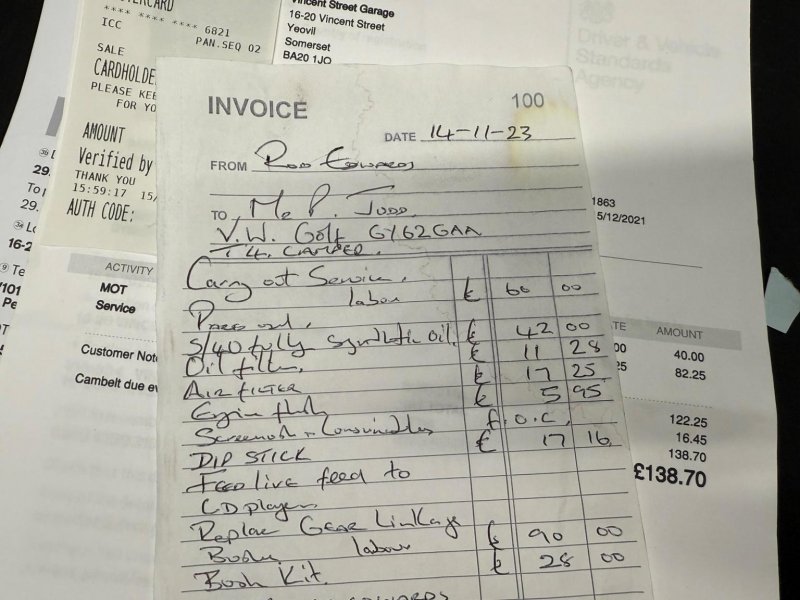 MASTERCARD
**** **** **** 6821
ICC
PAN.SEQ 02
SALE
CARDHOLDE
PLEASE KEE
FOR YO
AMOUNT
Verified by
THANK YOU
15:59:17 15/
AUTH CODE:
Vincent Street Garage
16-20 Vincent Street
Yeovil
Somerset
BA20 1JQ
Driver & Vehicle
Standards
Agency
INVOICE
100
DATE 14-11-23
FROM Rod Edwards
TO Mr P. Judd
V.W. Golf GY62GAA
T4 CAMPER.
Carry out Service.
labour £ 60 00
Parts used.
5/40 fully synthetic oil. £ 42 00
Oil filter. £ 11 28
AIR FILTER £ 17 25
Engine flush £ 5 95
Screenwash + Consumables f.o.c.
DIP STICK € 17 16
FEED live feed to
CD player
Replace Gear Linkage
Bushes labour £ 90 00
Bush Kit. £ 28 00
EDWARDS
1863
5/12/2021
ACTIVITY
AMOUNT
MOT
00 40.00
Service
25 82.25
Customer Note
Cambelt due ev
122.25
16.45
138.70
£138.70
29.
To
29.
Lo
16-2
Te
/101
Pe
OT